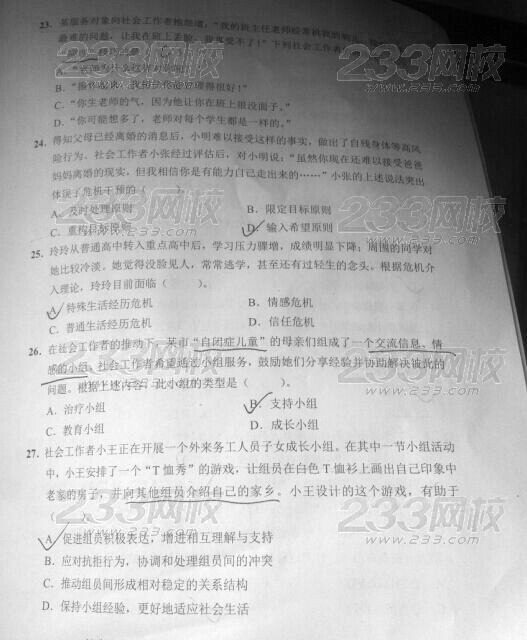 23. 某服务对象向社会工作者抱怨道，"我的班主任老师经常
最难的问题，让我在班上丢脸，我真受不了！"下列社会工作者
A.
B.
C. "你生老师的气，因为他让你在班上很没面子。"
D. "你可能想多了，老师对每个学生都是一样的。"
24. 得知父母已经离婚的消息后，小明难以接受这样的事实，做出了自残身体等高风
险行为。社会工作者小张经过评估后，对小明说："虽然你现在还难以接受爸爸
妈妈离婚的现实，但我相信你是有能力自己走出来的……"小张的上述说法突出
体现了危机干预的（ ）。
A. 及时处理原则 B. 限定目标原则
C. 重构目标原则 D. 输入希望原则
25. 玲玲从普通高中转入重点高中后，学习压力骤增，成绩明显下降；周围的同学对
她比较冷淡。她觉得没脸见人，常常逃学，甚至还有过轻生的念头。根据危机介
入理论，玲玲目前面临（ ）。
A. 特殊生活经历危机 B. 情感危机
C. 普通生活经历危机 D. 信任危机
26. 在社会工作者的推动下，某市"自闭症儿童"的母亲们组成了一个交流信息、情
感的小组。社会工作者希望通过小组服务，鼓励她们分享经验并协助解决彼此的
问题。根据上述内容，此小组的类型是（ ）。
A. 治疗小组 B. 支持小组
C. 教育小组 D. 成长小组
27. 社会工作者小王正在开展一个外来务工人员子女成长小组。在其中一节小组活动
中，小王安排了一个"T恤秀"的游戏，让组员在白色T恤衫上画出自己印象中
老家的房子，并向其他组员介绍自己的家乡。小王设计的这个游戏，有助于
（ ）。
A. 促进组员积极表达，增进相互理解与支持
B. 应对抗拒行为，协调和处理组员间的冲突
C. 推动组员间形成相对稳定的关系结构
D. 保持小组经验，更好地适应社会生活
233网校
www.233.com